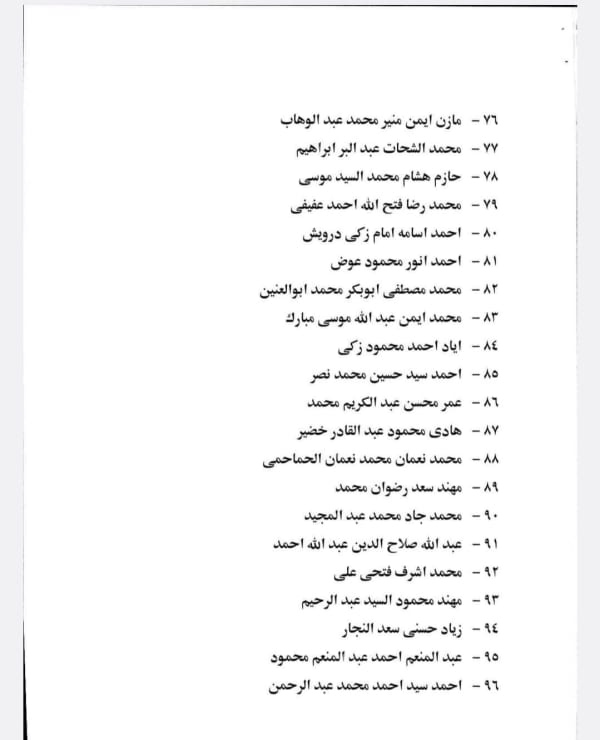 ٧٦ - مازن ايمن منير محمد عبد الوهاب
٧٧ - محمد الشحات عبد البر ابراهيم
٧٨ - حازم هشام محمد السيد موسى
٧٩ - محمد رضا فتح الله احمد عفيفى
٨٠ - احمد اسامه امام زكى درويش
٨١ - احمد انور محمود عوض
٨٢ - محمد مصطفى ابوبكر محمد ابوالعنين
٨٣ - محمد ايمن عبد الله موسى مبارك
٨٤ - اياد احمد محمود زكى
٨٥ - احمد سيد حسين محمد نصر
٨٦ - عمر محسن عبد الكريم محمد
٨٧ - هادى محمود عبد القادر خضير
٨٨ - محمد نعمان محمد نعمان الحماحمى
٨٩ - مهند سعد رضوان محمد
٩٠ - محمد جاد محمد عبد المجيد
٩١ - عبد الله صلاح الدين عبد الله احمد
٩٢ - محمد اشرف فتحى على
٩٣ - مهند محمود السيد عبد الرحيم
٩٤ - زياد حسنى سعد النجار
٩٥ - عبد المنعم احمد عبد المنعم محمود
٩٦ - احمد سيد احمد محمد عبد الرحمن